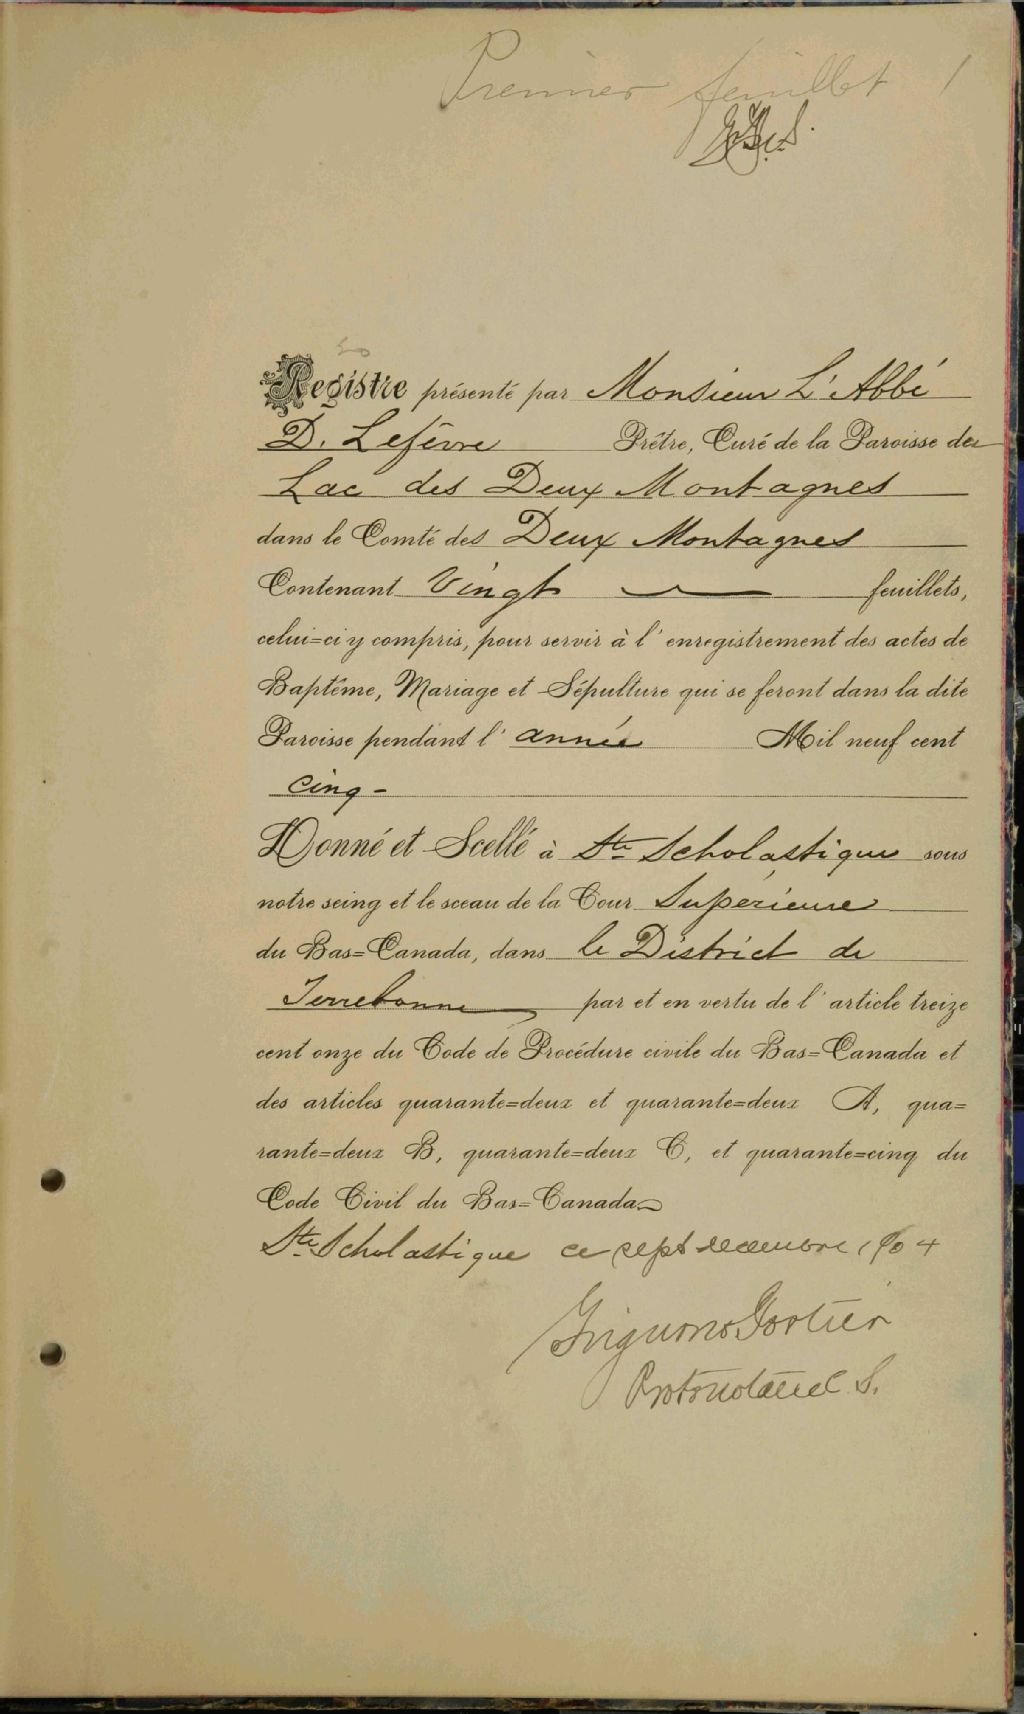 Premier feuillet 1
Registre présenté par Monsieur L'Abbé
D. Lefèvre Prêtre, Curé de la Paroisse des
Lac des Deux Montagnes
dans le Comté des Deux Montagnes
Contenant Vingt feuillets,
celui=ci y compris, pour servir à l'enregistrement des actes de
Baptême, Mariage et Sépulture qui se feront dans la dite
Paroisse pendant l'année Mil neuf cent
cinq -
Donné et Scellé à Ste Scholastique sous
notre seing et le sceau de la Cour Supérieure
du Bas=Canada, dans le District de
Terrebonne par et en vertu de l'article treize
cent onze du Code de Procédure civile du Bas=Canada et
des articles quarante=deux et quarante=deux A, qua=
rante=deux B, quarante=deux C, et quarante=cinq du
Code Civil du Bas=Canada
Ste Scholastique ce sept decembre 1904
Grignon & Fortier